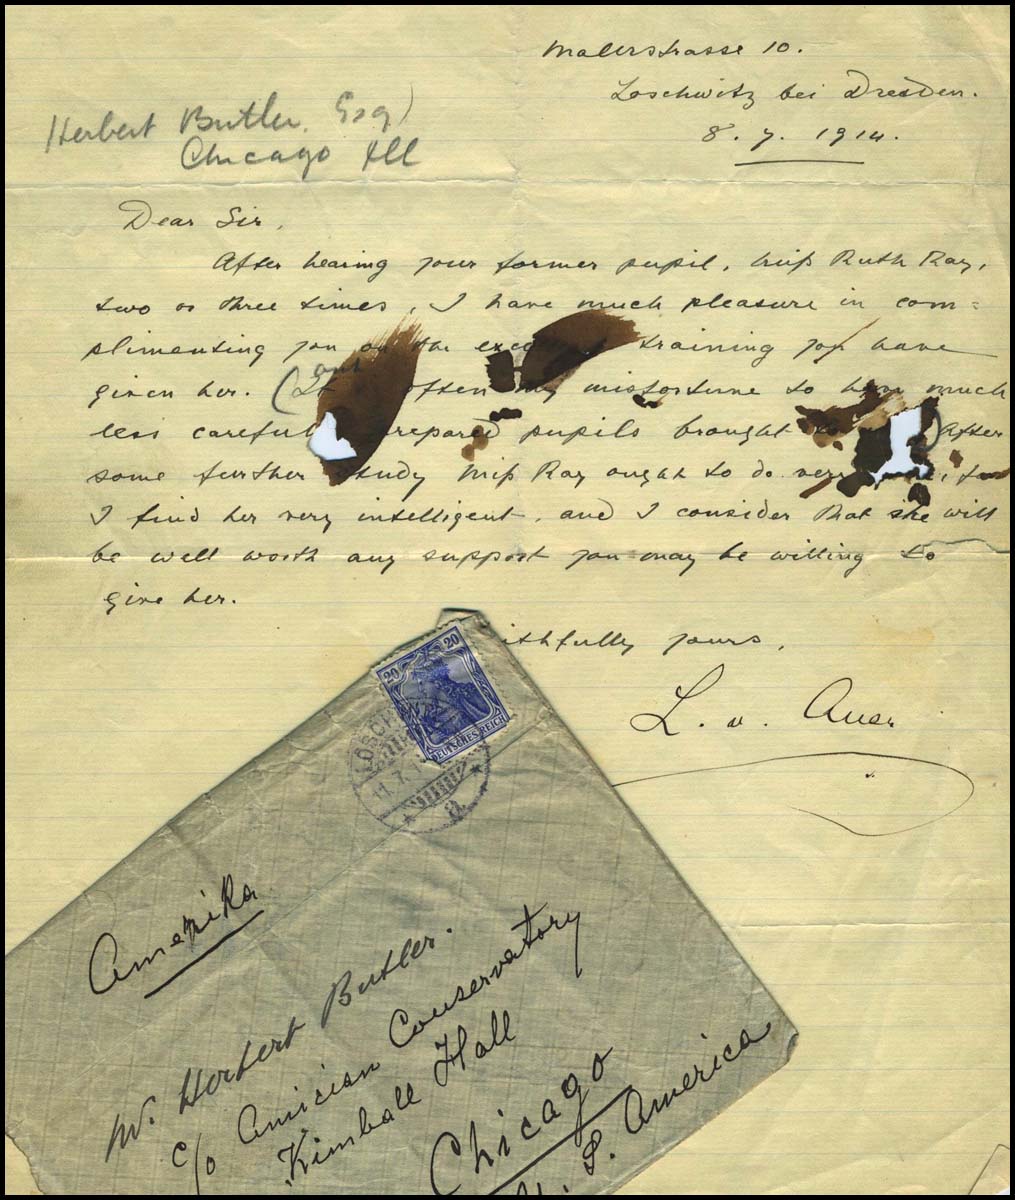 Malerstrasse 10.
Loschwitz bei Dresden.
8. 7. 1914.
Herbert Butler, Esq)
Chicago Ill
Dear Sir,
After hearing your former pupil, Miss Ruth Ray,
two or three times, I have much pleasure in com=
plimenting you on the training you have
given her. (It often my misfortune to have much
less careful prepared pupils brought After
some further study Miss Ray ought to do very
I find her very intelligent, and I consider that she will
be well worth any support you may be willing to
give her.
ithfully yours,
L. v. Auer
20 20
DEUTSCHES REICH
LOSCH
11.7.
Amerika
Mr. Herbert Butler.
c/o Amician Conservatory
Kimball Hall
Chicago
S. America